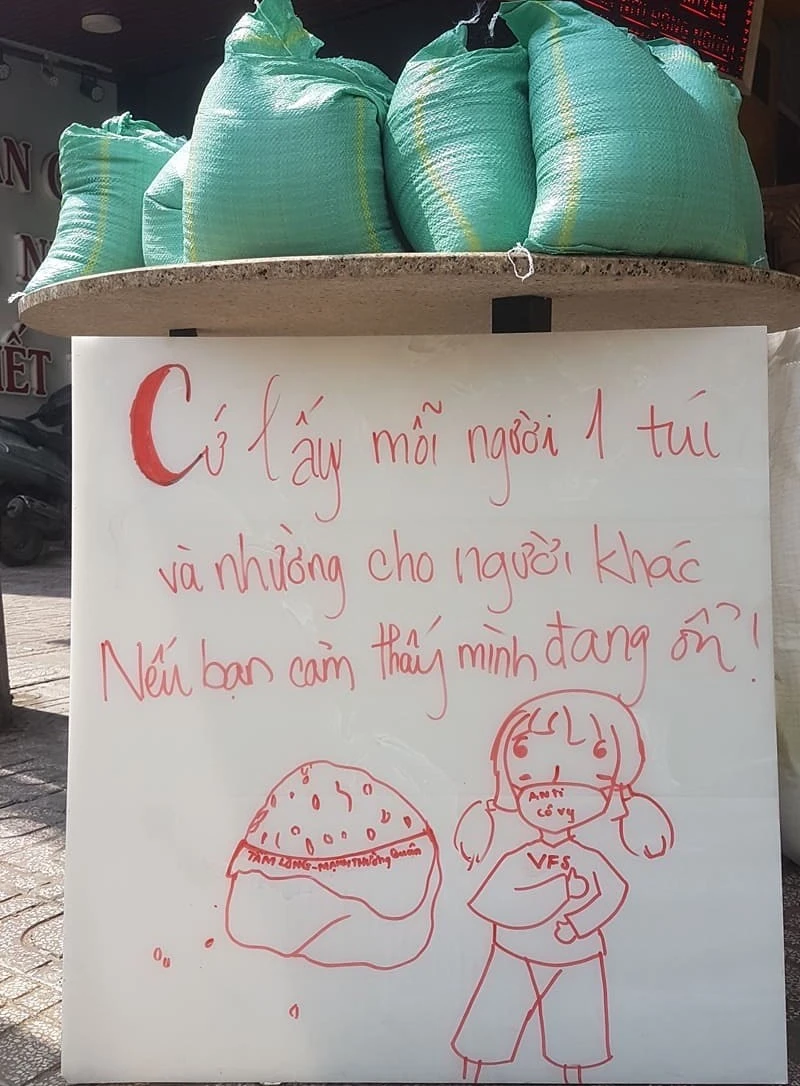 ẾT
Cứ lấy mỗi người 1 túi
và nhường cho người khác
Nếu bạn cảm thấy mình đang ổn!
ANTI
cô vy
TẤM LÒNG-MẠNH THƯỜNG Quân
VFS